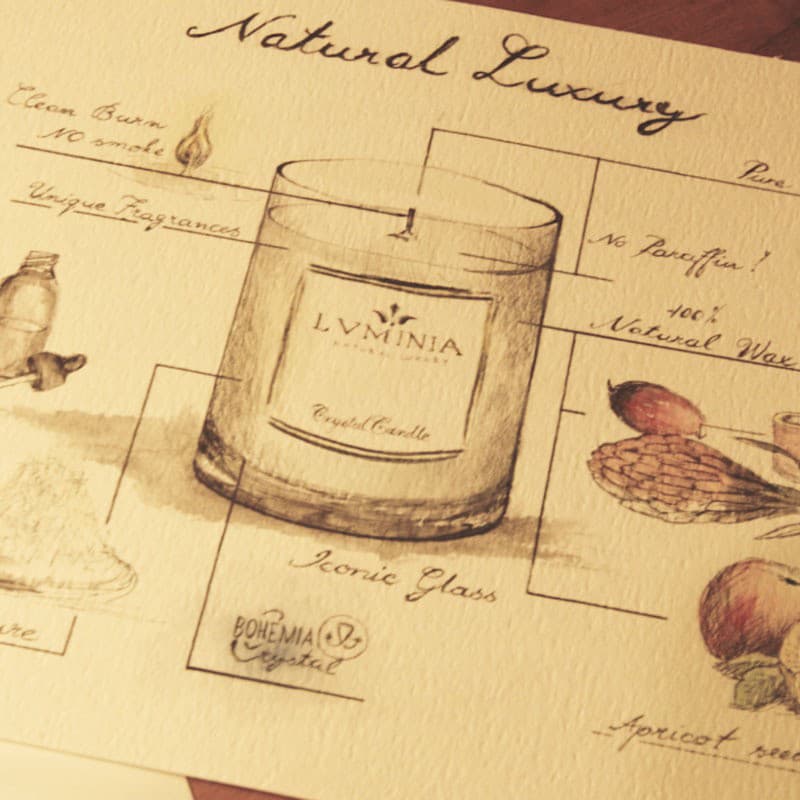 Natural Luxury
Clean Burn
NO smoke
Pure
Unique Fragrances
No Paraffin!
100%
Natural Wax
LVMINIA
Crystal Candle
Iconic Glass
BOHEMIA
Crystal
Apricot